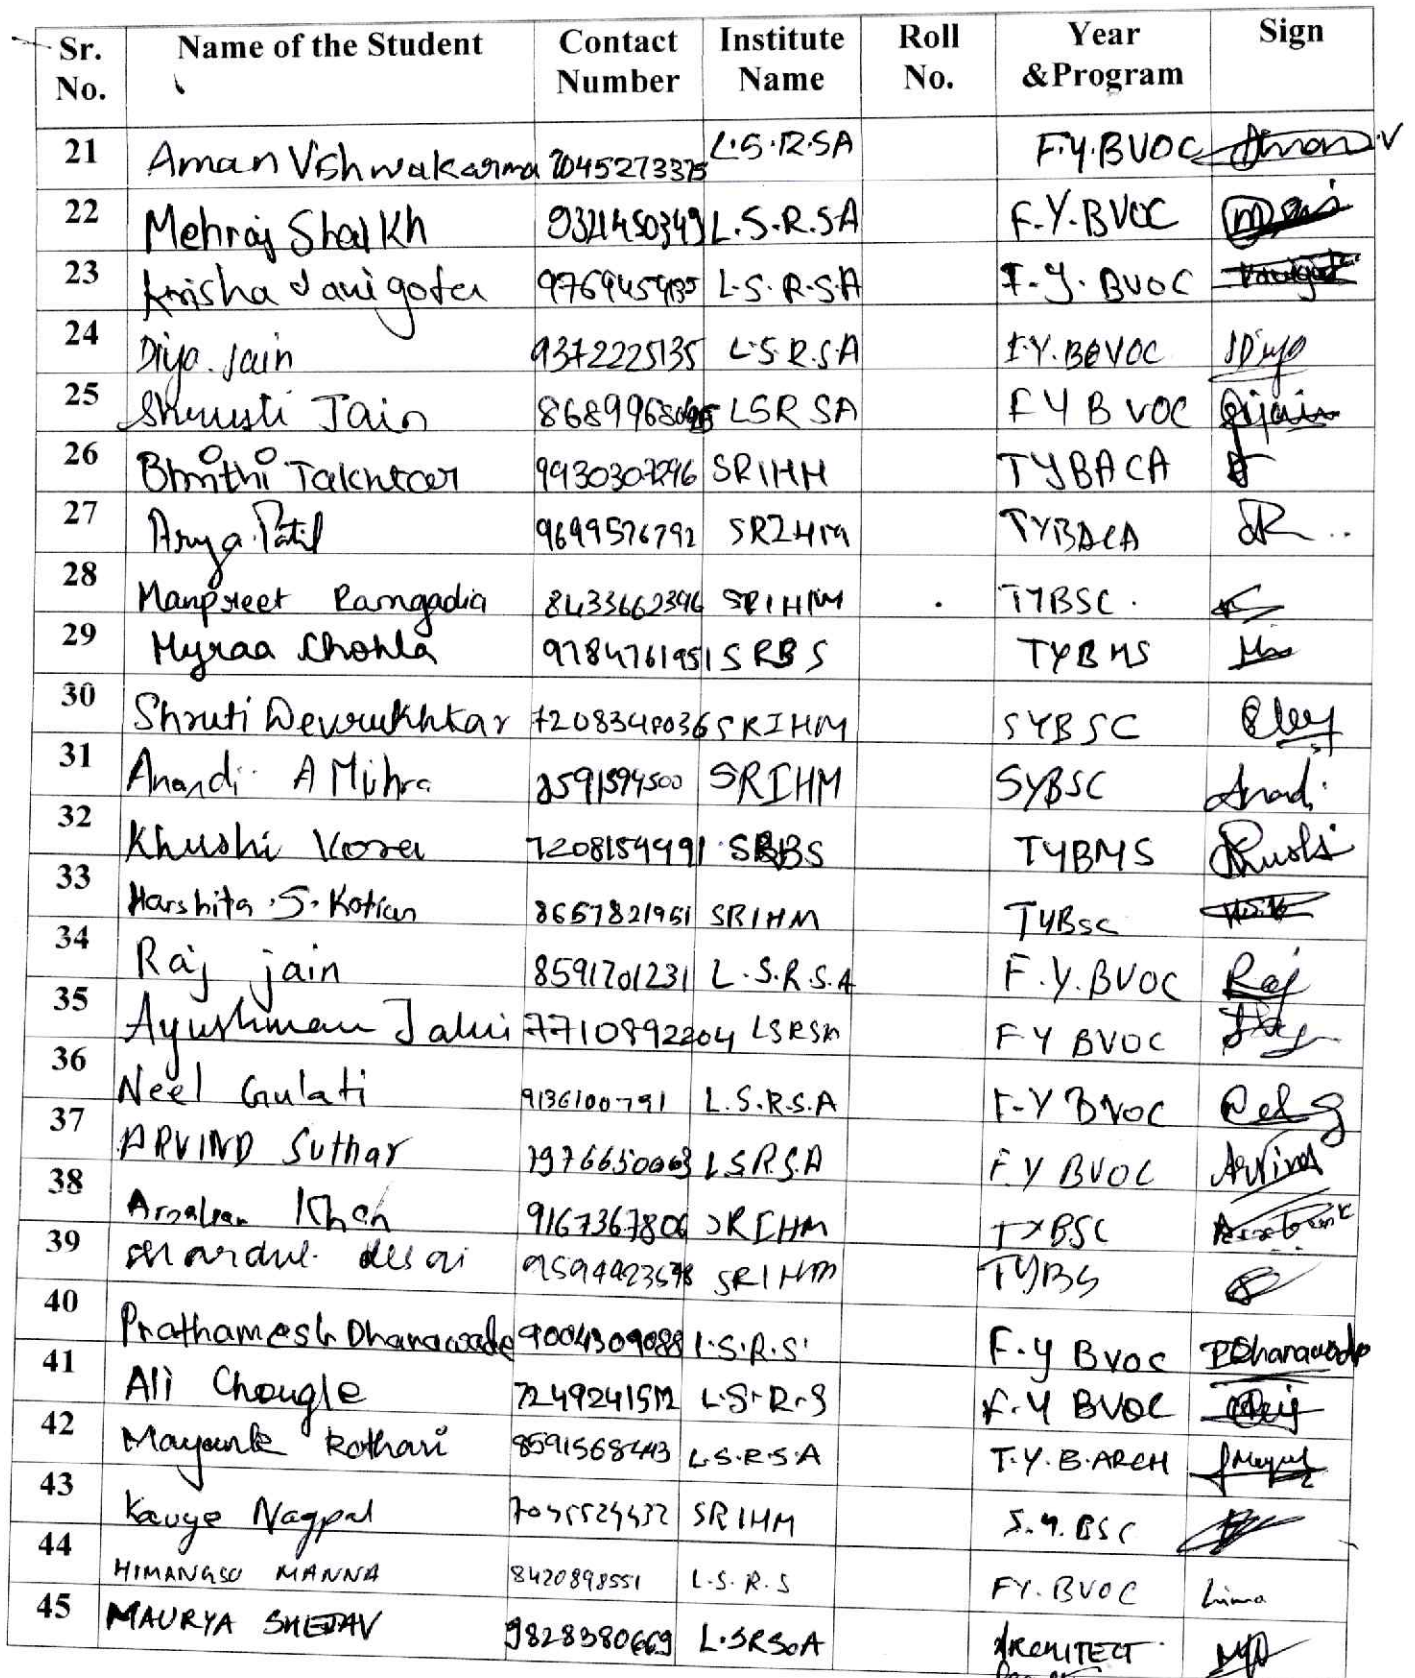 Sr. No. Name of the Student Contact Number Institute Name Roll No. Year &Program Sign
21 Aman Vishwakarma 7045273375 L.S.R.SA F.Y.BVOC Aman V
22 Mehraj Shaikh 9321450349 L.S.R.SA F.Y.BVOC
23 Krisha Vanigota L.S.R.S.A F.Y.BVOC
24 Diya Jain 9372225135 L.S.R.S.A F.Y.BVOC Diya
25 Shrusti Jain LSRSA FYBVOC Sjain
26 Takhtar 9930307296 SRIHM TYBACA
27 Arya Patil 9699576792 SRIHM TYBACA
28 Manpreet Ramgadia 8433662396 SRIHM TYBSC.
29 Myraa Chohla 9784761951 SRBS TYBMS
30 Shruti Devrukhkar 7208348036 SRIHM SYBSC
31 Anandi A Mishra SRIHM SYBSC Anandi
32 Khushi Vora 7208159991 SRBS TYBMS Khushi
33 Harshita .S. Kotian 8657821951 SRIHM TYBsc
34 Raj jain 8591701231 L.S.R.S.A F.Y.BVOC Raj
35 Ayushman 7710892204 LSRSA FY BVOC
36 Neel Gulati 9136100791 L.S.R.S.A F.Y BVOC
37 ARVIND Suthar LSRSA F.Y BVOC Arvind
38 Arsalan Khan 9167367806 SRIHM TYBSC
39 desai SRIHM TYBS
40 Prathamesh Dhanawade 9004309088 L.S.R.S F.Y BVOC PDhanawade
41 Ali Chougle L.S.R.S F.Y BVOC
42 Mayank Kothari 8591568443 L.S.R.S.A T.Y.B.ARCH
43 Kavye Nagpal SRIHM S.Y.BSC
44 HIMANGSU MANNA 8420898551 L.S.R.S FY.BVOC
45 MAURYA 9828380669 L.SRSA ARCHITECT